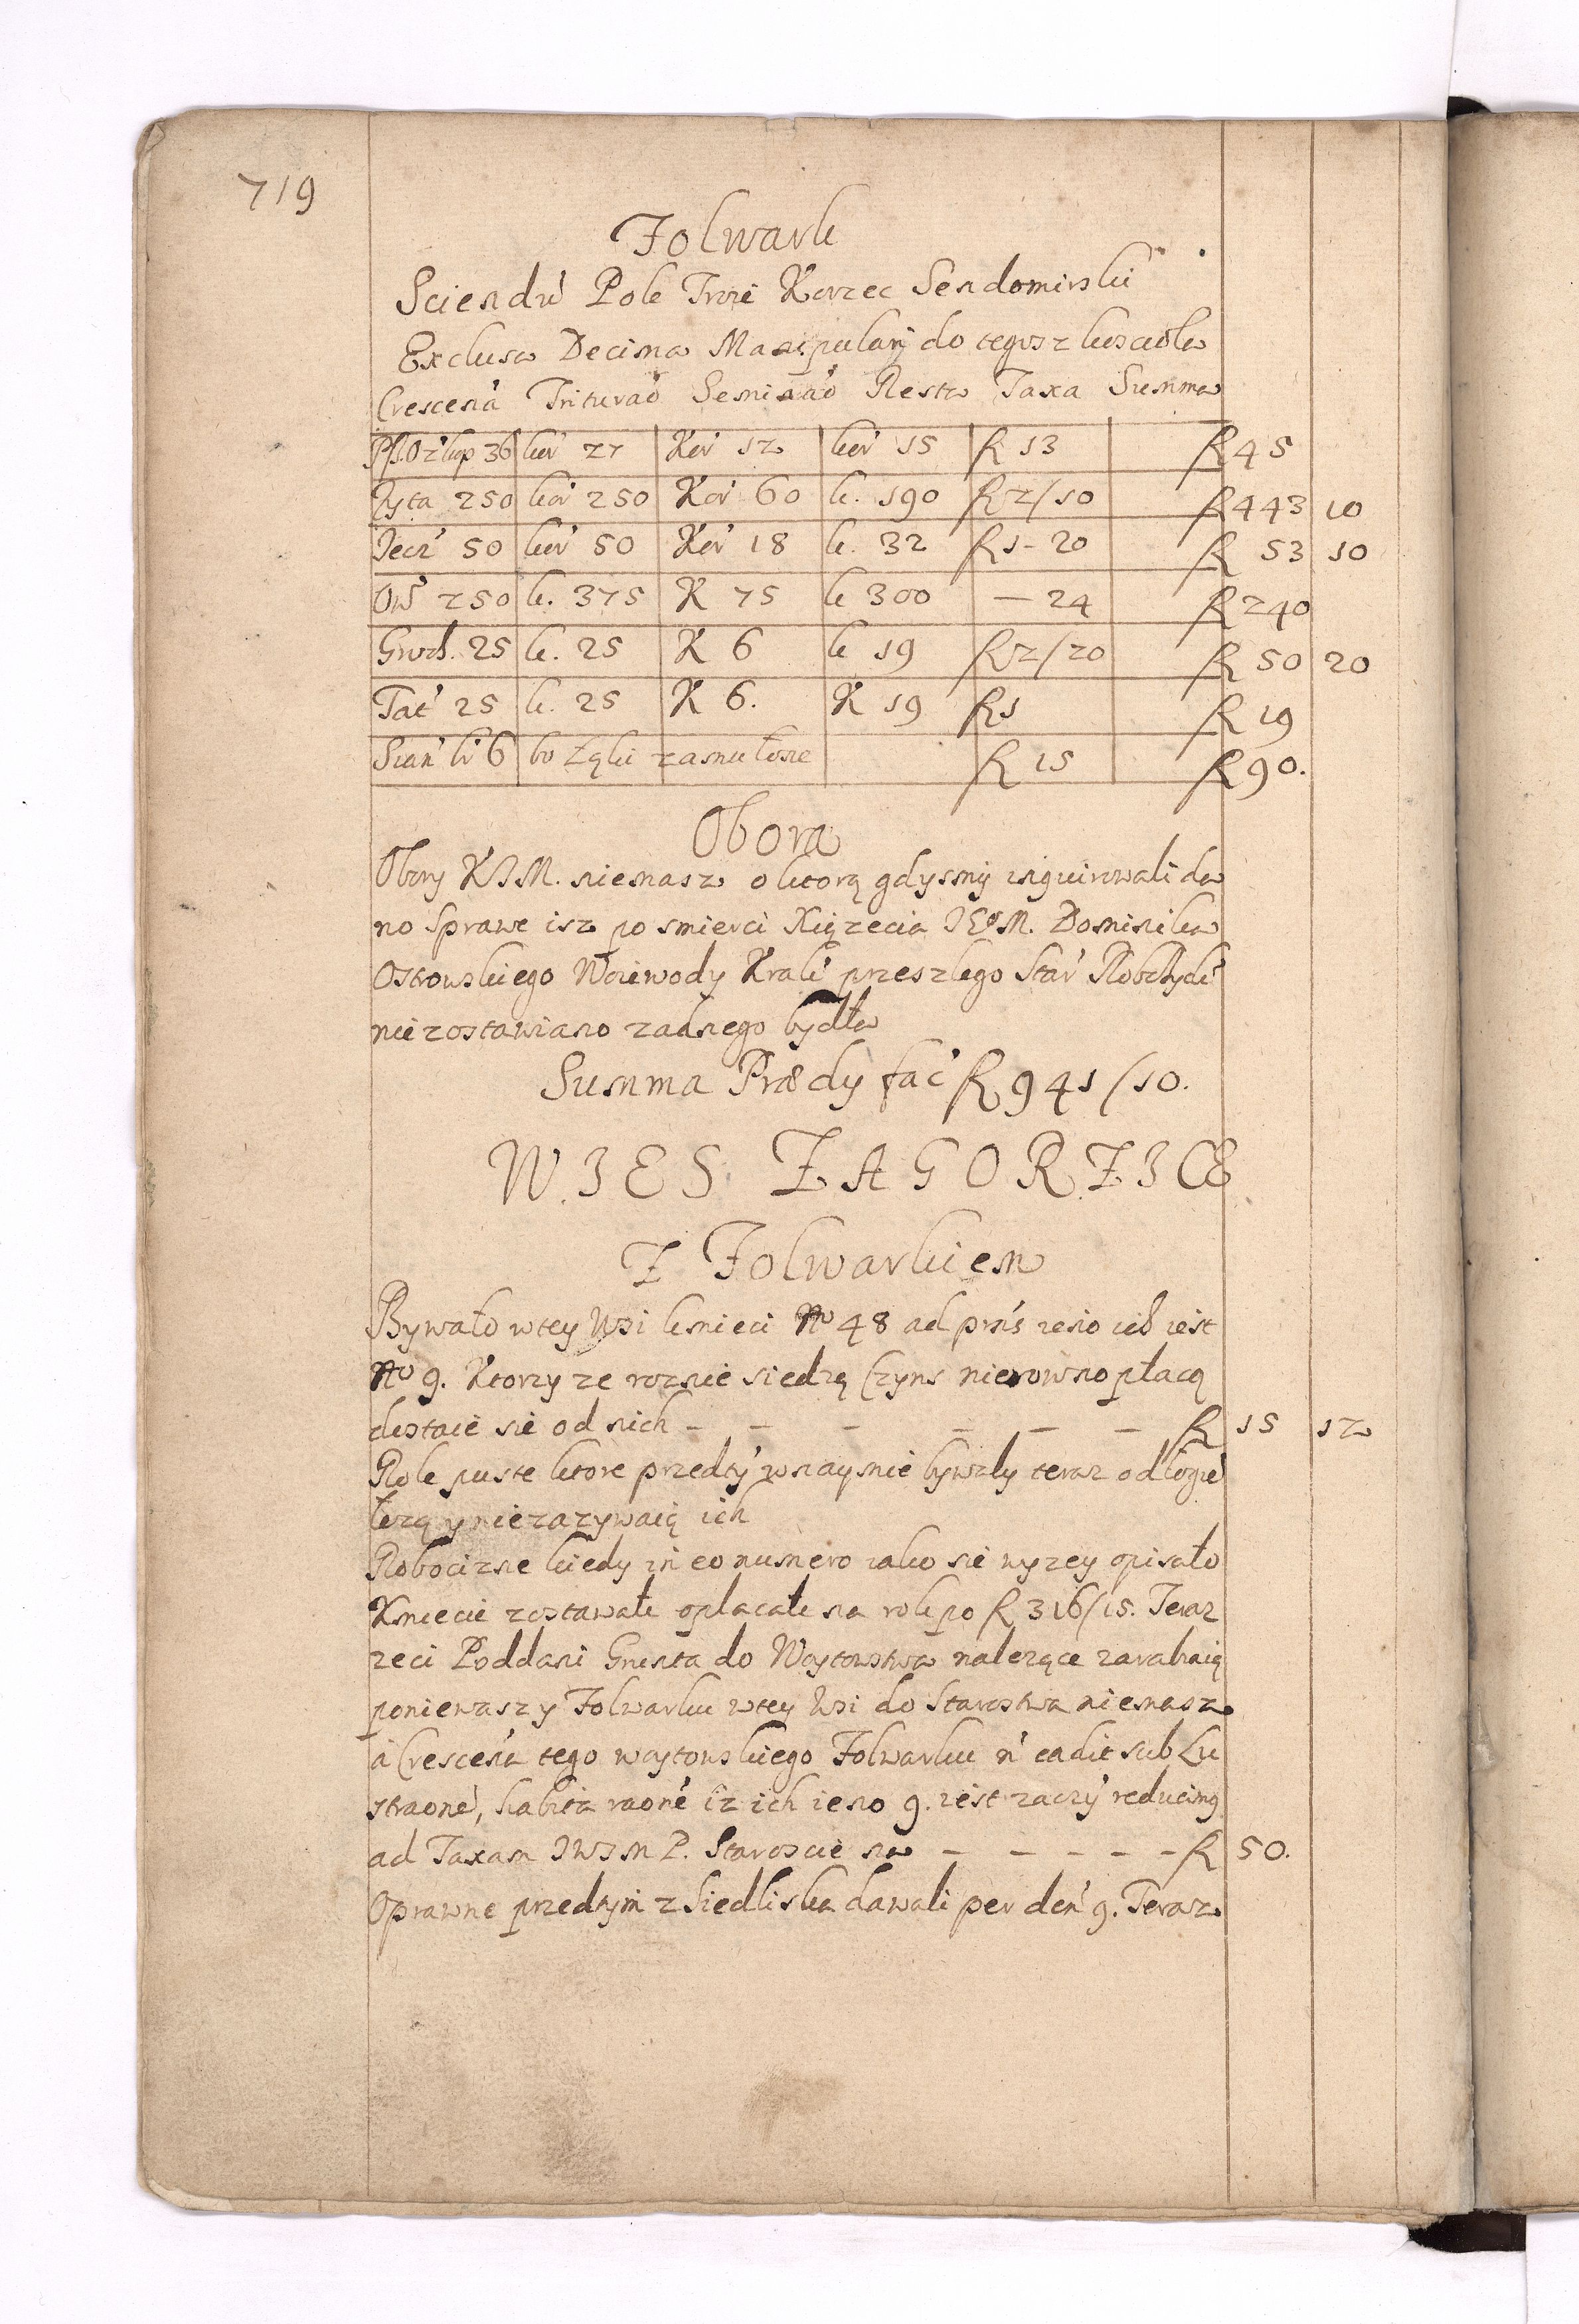 719
Folwark
Sciendu Pole Troie Korzec Sendomirski
Exclusa Decima Manipulary do tegosz koscioła
Crescená Trituraó Seminaó Resta Taxa Summa
kor 27 Kor 12 kor 15 fl 13 fl 45
Zyta 250 kor 250 Kor 60 k. 190 fl 2/10 fl 443 10
Jecz 50 kor 50 Kor 18 k. 32 fl 1-20 fl 53 10
Ows 250 k. 375 K 75 k 300 — 24 fl 240
Groch. 25 k. 25 K 6 k 19 fl 2/20 fl 50 20
Tat 25 k. 25 K 6. K 19 fl 1 fl 19
Sian 6 bo Łąki zamułone fl 15 fl 90.
Obora
Obory KJM. niemasz o ktorą gdysmy inquirowali da
no sprawe isz po smierci Xiązecia JE°M. Dominika
Ostrowskiego Woiewody Krak przeszlego Star Robczyck
nie zostawiano zadnego bydła
Summa Prædy fac fl 941/10.
WIES ZAGORZICE
Z Folwarkiem
Bywało wtey Wsi kmieci No 48 ad prńs ieno ich iest
No 9. Ktorzy ze roznie siedzą Czyns nierowno płacą
dostaie sie od nich - - - - - - fl 15 12
Role puste ktore przedty wnaymie bywały teraz odłogie
lezą y niezazywaią ich
Robocizne kiedy in eo numero iako sie wyzey opisało
Kmiecie zostawałe opłacałe na role po fl 316/15. Teraz
zeci Poddani Grunta do Woytowstwa nalezące zarabiaią
poniewasz y Folwarku wtey Wsi do Starostwa niemasz
á Crescená tego woytowskiego Folwarku ń cadit sub Lu
straoné, habita raoné iz ich ieno 9. iest zaczy reducimg
ad Taxam JWJM P. Staroscie na - - - - - fl 50.
Oprawne przedtym z Siedliska dawali per den 9. Teraz